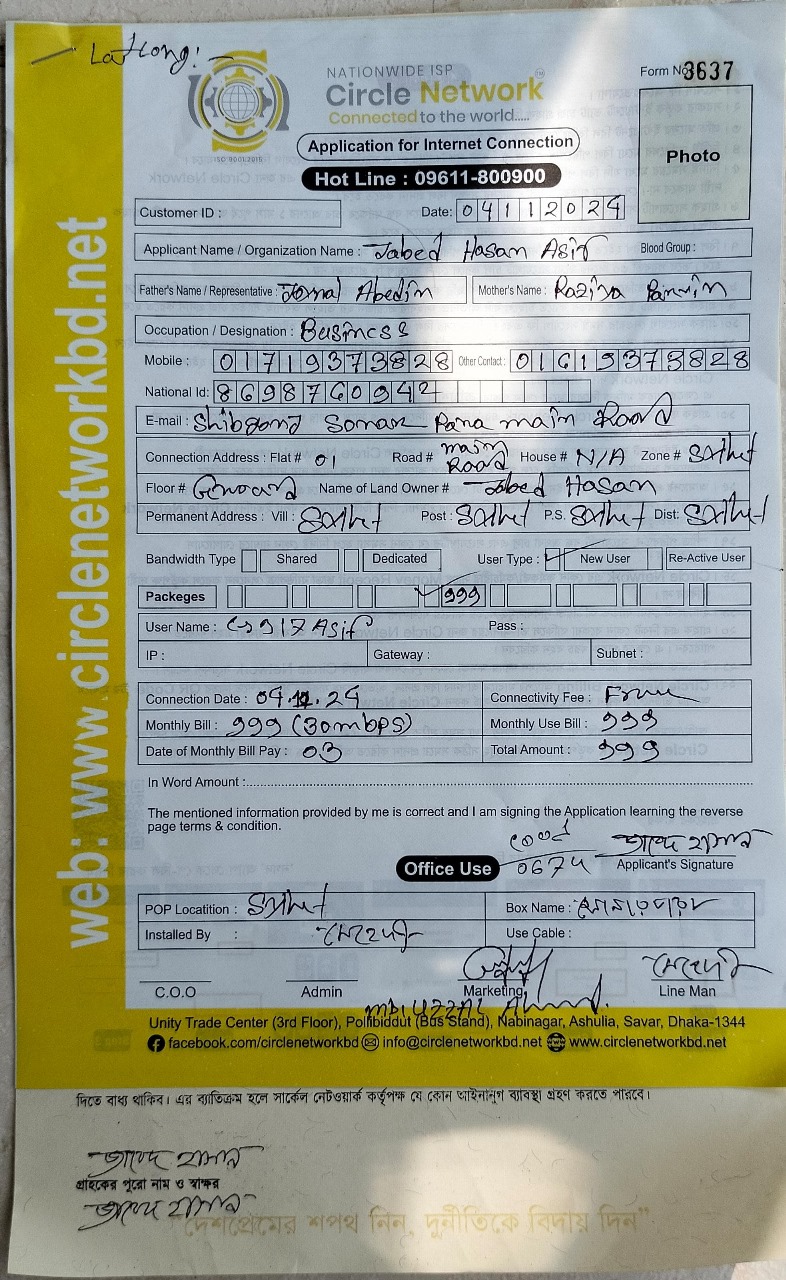 NATIONWIDE ISP
Circle Network
Connected to the world.....
ISO 9001:2015
Form No 3637
Application for Internet Connection
Photo
Hot Line : 09611-800900
Customer ID :
Date: 04112024
Applicant Name / Organization Name : Jabed Hasan Asif Blood Group :
Father's Name / Representative : Jomal Abedin Mother's Name : Raziya Parvin
Occupation / Designation : Business
Mobile : 01719373828 Other Contact : 01619373828
National Id: 8698760942
E-mail : Shibgonj Sonar Para main Road
Connection Address : Flat # 01 Road # main Road House # N/A Zone # Sylhet
Floor # Ground Name of Land Owner # Jabed Hasan
Permanent Address : Vill : Sylhet Post : Sylhet P.S. Sylhet Dist: Sylhet
Bandwidth Type Shared Dedicated User Type : New User Re-Active User
Packeges 999
User Name : Asif Pass :
IP : Gateway : Subnet :
Connection Date : 04.11.24 Connectivity Fee : Free
Monthly Bill : 999 (30mbps) Monthly Use Bill : 999
Date of Monthly Bill Pay : 03 Total Amount : 999
In Word Amount :
The mentioned information provided by me is correct and I am signing the Application learning the reverse
page terms & condition.
Office Use
Applicant's Signature
POP Locatition : Sylhet Box Name : সোনারপাড়া
Installed By : মেহেদী Use Cable :
মেহেদী
C.O.O Admin Marketing Line Man
MD. UZZAL Ahmed.
Unity Trade Center (3rd Floor), Pollibiddut (Bus Stand), Nabinagar, Ashulia, Savar, Dhaka-1344
facebook.com/circlenetworkbd info@circlenetworkbd.net www.circlenetworkbd.net
web: www.circlenetworkbd.net
দিতে বাধ্য থাকিব। এর ব্যতিক্রম হলে সার্কেল নেটওয়ার্ক কর্তৃপক্ষ যে কোন আইনানুগ ব্যবস্থা গ্রহণ করতে পারবে।
জাবেদ হাসান
গ্রাহকের পুরো নাম ও স্বাক্ষর
জাবেদ হাসান
"দেশপ্রেমের শপথ নিন, দুর্নীতিকে বিদায় দিন"